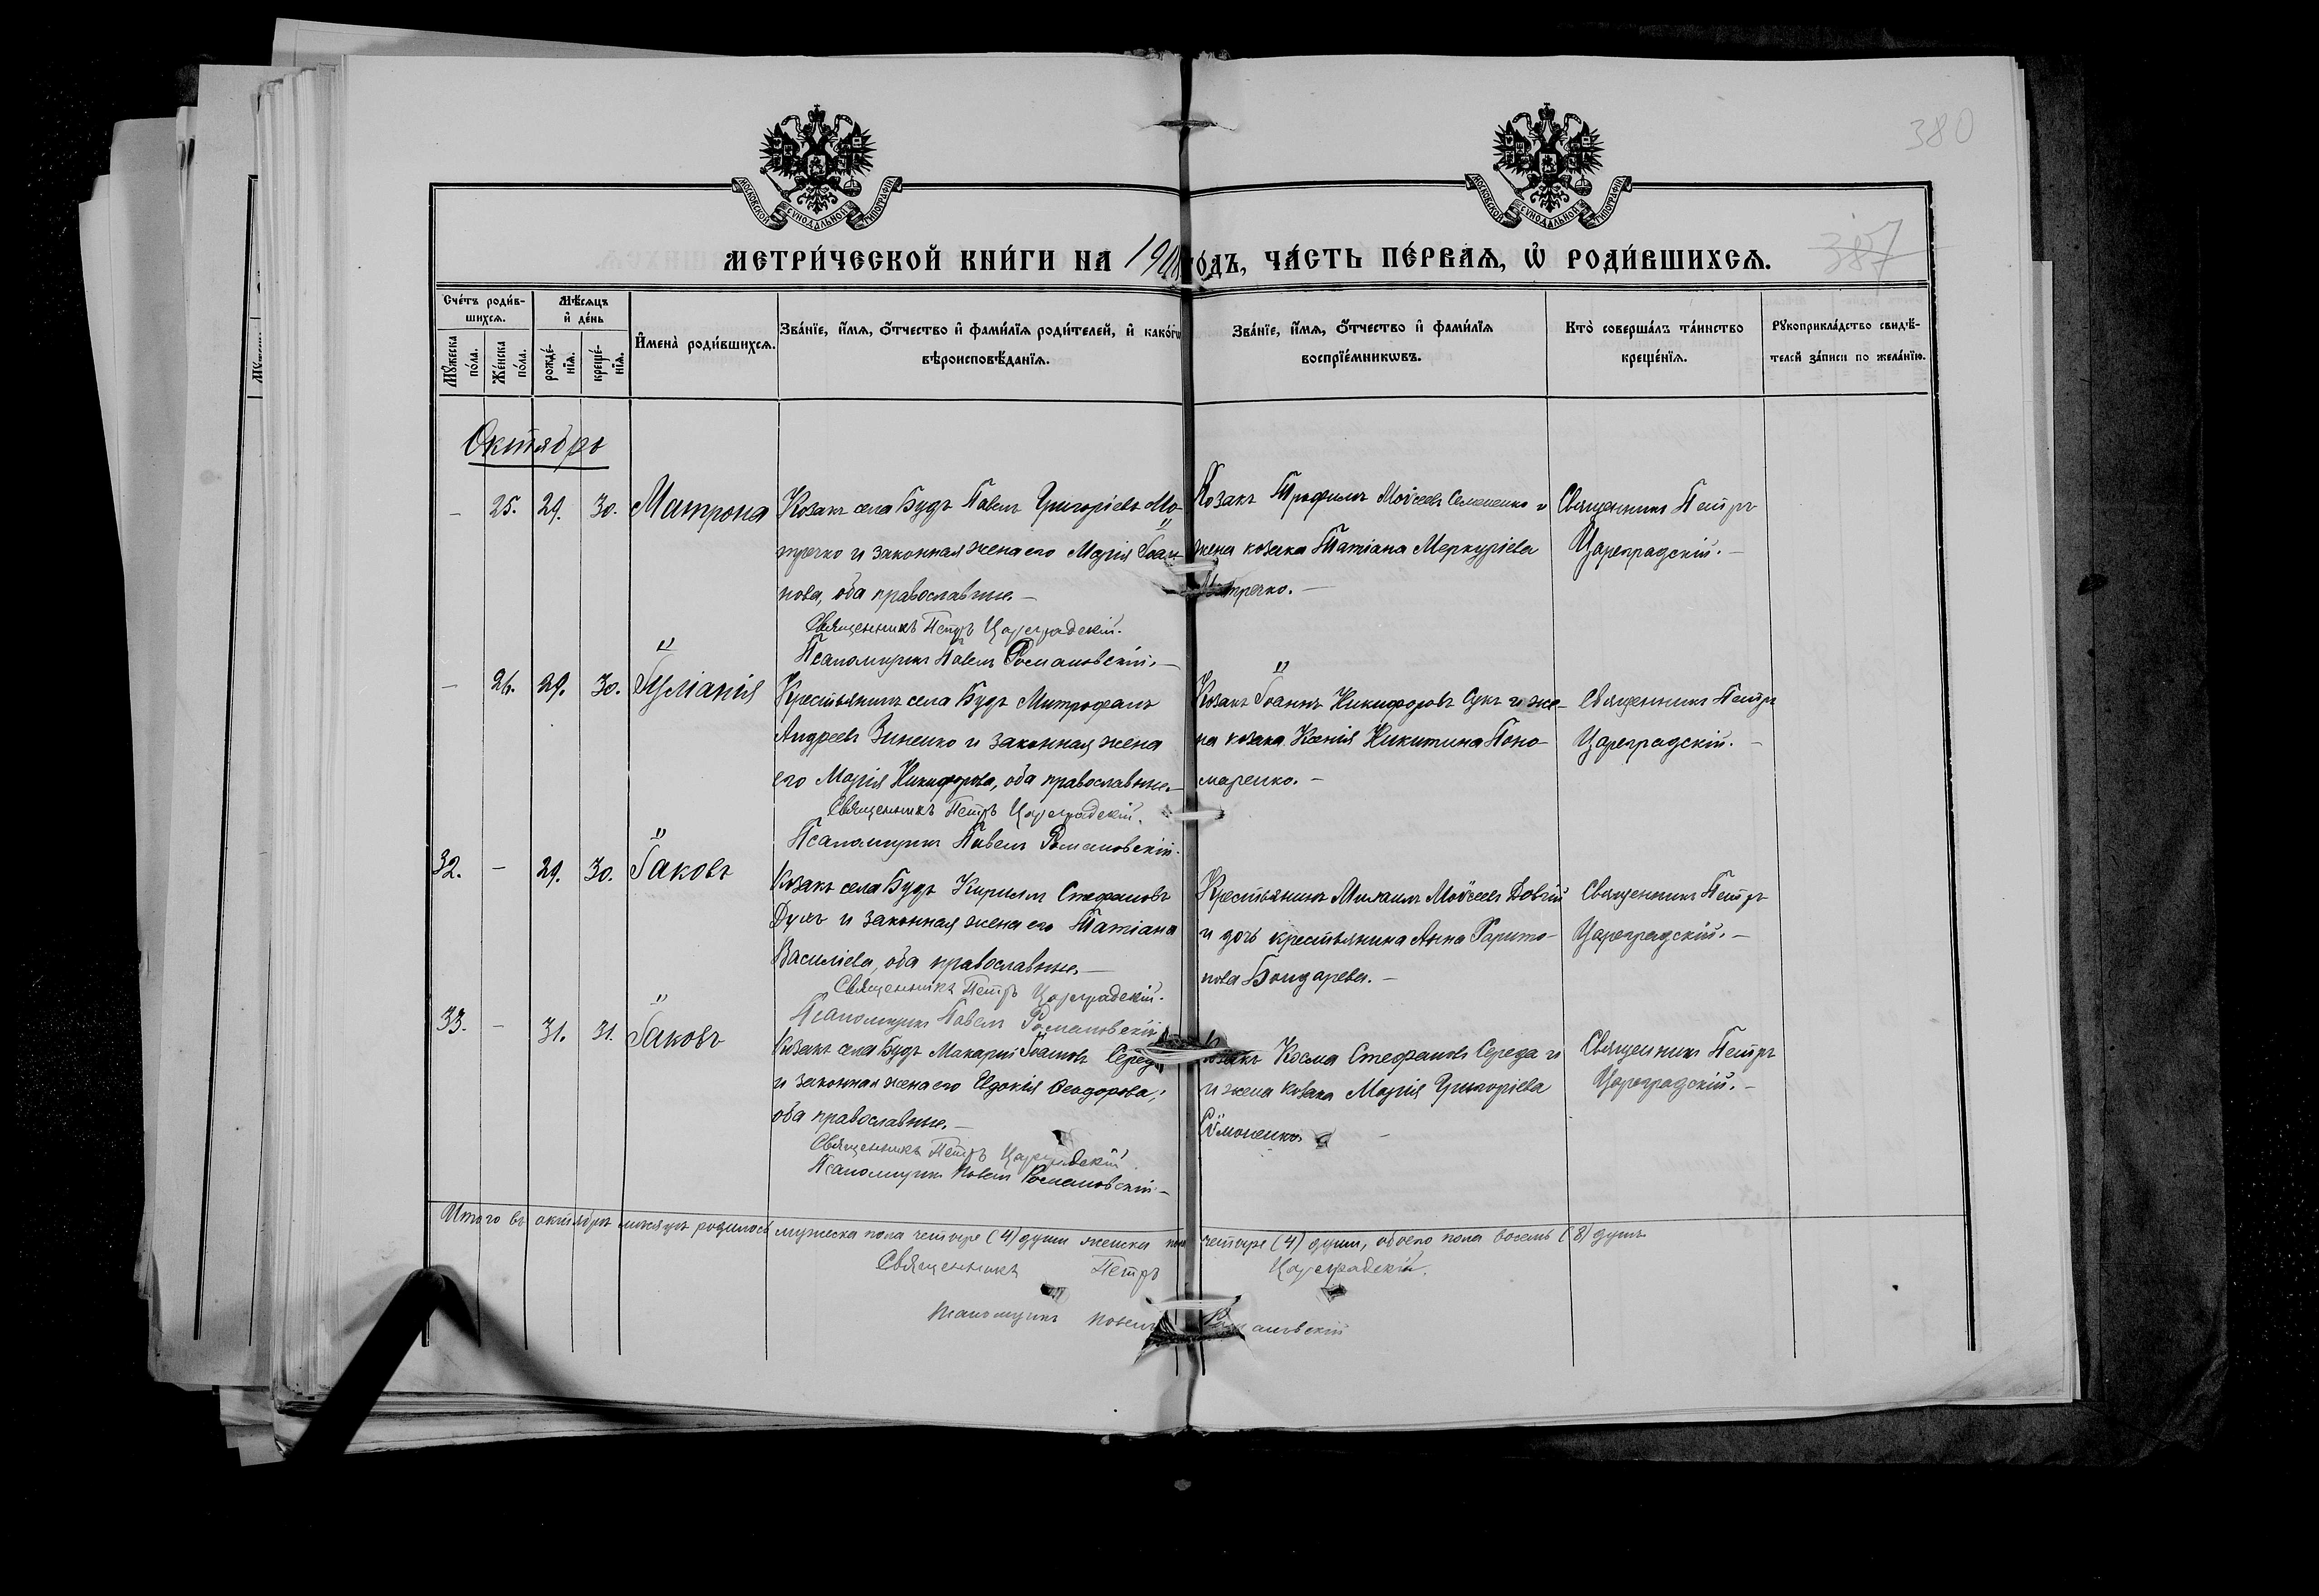 380
МОСКОВСКОЙ СѴНОДАЛЬНОЙ ТИПОГРАФІИ
МОСКОВСКОЙ СѴНОДАЛЬНОЙ ТИПОГРАФІИ
387
МЕТРИ́ЧЕСКОЙ КНИ́ГИ НА 19 ГОДЪ, ЧА́СТЬ ПЕ́РВАѦ, Ѡ҆ РОДИ́ВШИХСѦ.
Сче́тъ роди́в-
шихсѧ.
Мѣ́сѧцъ
и҆ де́нь
Мꙋ́жеска
по́ла.
Же́нска
по́ла.
рожде́-
нїѧ.
креще́-
нїѧ.
И҆мена̀ роди́вшихсѧ.
Зва́нїе, и҆́мѧ, ѻ҆́тчество и҆ фами́лїѧ роди́телей, и҆ како́гѡ
вѣроисповѣ́данїѧ.
Зва́нїе, и҆́мѧ, ѻ҆́тчество и҆ фами́лїѧ
воспрїе́мникѡвъ.
Кто̀ соверша́лъ та́инство
креще́нїѧ.
Рꙋкоприкла́дство свидѣ́-
телей за́писи по жела́нїю.
Октябрь
– 25. 29. 30. Матрона
Козакъ села Будъ Павелъ Григоріевъ Мо-
тречко и законная жена его Марія Іоан-
нова, оба православные.–
Священникъ Петръ Цареградскій.
Псаломщикъ Павелъ Романовскій.–
Козакъ Трофимъ Моѵсеевъ Семененко и
жена козака Татіана Меркуріева
Мотречко.–
Священникъ Петръ
Цареградскій.–
– 26. 29. 30. Іуліанія
Крестьянинъ села Будъ Митрофанъ
Андреевъ Зиненко и законная жена
его Марія Никифорова, оба православные.–
Священникъ Петръ Цареградскій.
Псаломщикъ Павелъ Романовскій.
Козакъ Іоаннъ Никифоровъ Сукъ и же-
на козака Ксенія Никитина Поно-
маренко.–
Священникъ Петръ
Цареградскій.–
32. – 29. 30. Іаковъ
Козакъ села Будъ Кириллъ Стефановъ
Духъ и законная жена его Татіана
Василіева, оба православные.–
Священникъ Петръ Цареградскій.
Псаломщикъ Павелъ Романовскій
Крестьянинъ Михаилъ Моѵсеевъ Довгій
и дочь крестьянина Анна Харито-
нова Бондарева.–
Священникъ Петръ
Цареградскій.–
33. – 31. 31. Іаковъ
Козакъ села Будъ Макарій Іоанновъ Середа
и законная жена его Евдокія Ѳеодорова,
оба православные.–
Священникъ Петръ Цареградскій
Псаломщикъ Павелъ Романовскій–
Козакъ Косма Стефановъ Середа и
и жена козака Марія Григоріева
Священникъ Петръ
Цареградскій.–
Итого въ октябрѣ мѣсяцѣ родилось мужеска пола четыре (4) души женска пола четыре (4) души, обоего пола восемь (8) душъ
Священникъ Петръ Цареградскій.
Псаломщикъ Павелъ Романовскій